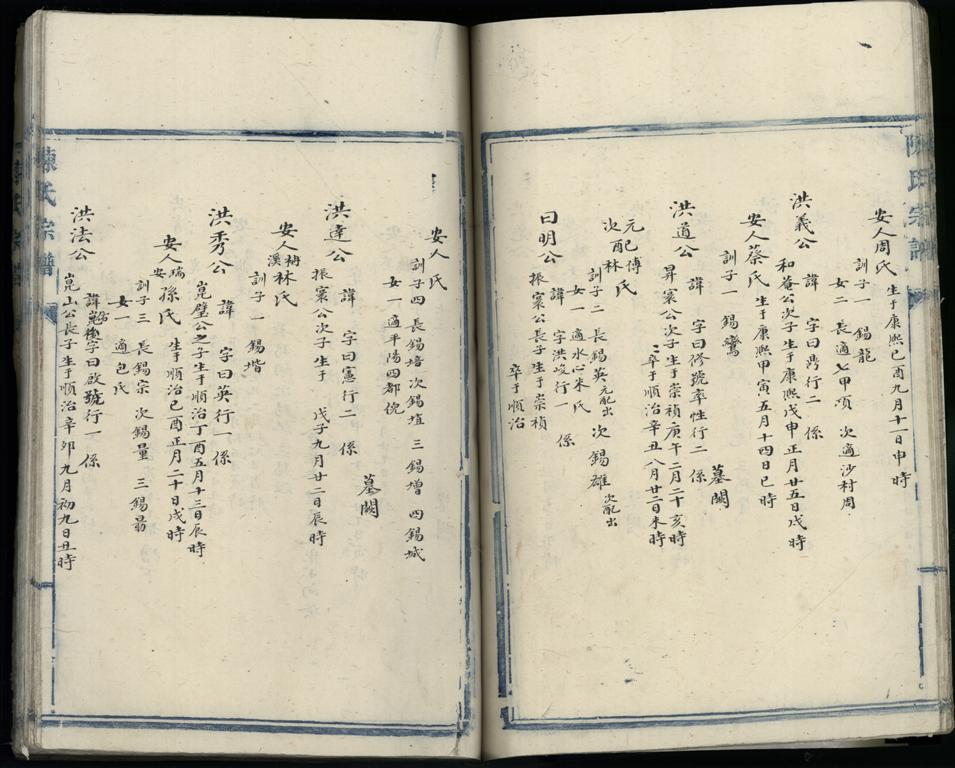 陳氏宗譜
安人周氏 生于康熙己酉九月十一日申時
訓子一 錫龍
女二 長適七甲項 次適沙村周
洪義公 諱 字曰鼎行二 係
和菴公次子生于康熙戊申正月廿五日戌時
安人蔡氏 生于康熙甲寅五月十四日巳時
訓子一 錫鸞
墓闕
洪道公 諱 字曰修號率性行二 係
昇寰公次子生于崇禎庚午二月二十亥時
卒于順治辛丑八月廿二日未時
元配傅氏
次配林
訓子二 長錫英元配出 次錫雄次配出
女一 適水心朱氏
曰明公 諱 字洪峻行一 係
振寰公長子生于崇禎
卒于順治
安人 氏
訓子四 長錫培 次錫埴 三錫增 四錫城
女一 適平陽四都倪
墓闕
洪達公 諱 字曰憲行二 係
振寰公次子生于 戊子九月廿二日辰時
安人梅溪林氏
訓子一 錫堦
洪秀公 諱 字曰英行一 係
崑璧公之子生于順治丁酉五月十三日辰時
安人瑞安孫氏 生于順治己酉正月二十日戌時
訓子三 長錫宗 次錫量 三錫昴
女一 適包氏
洪法公 諱 字曰啟號行一 係
崑山公長子生于順治辛卯九月初九日丑時
陳氏宗譜